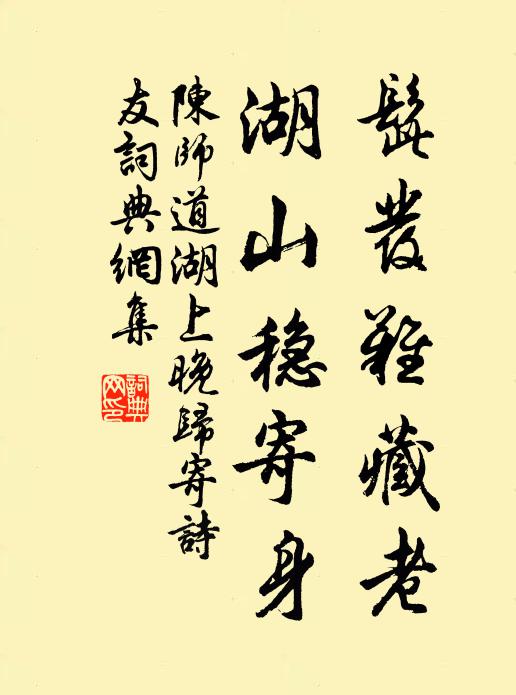 髭發難藏老
湖山穩寄身
陳師道湖上晚歸寄詩
友詞典網集
詞典
网